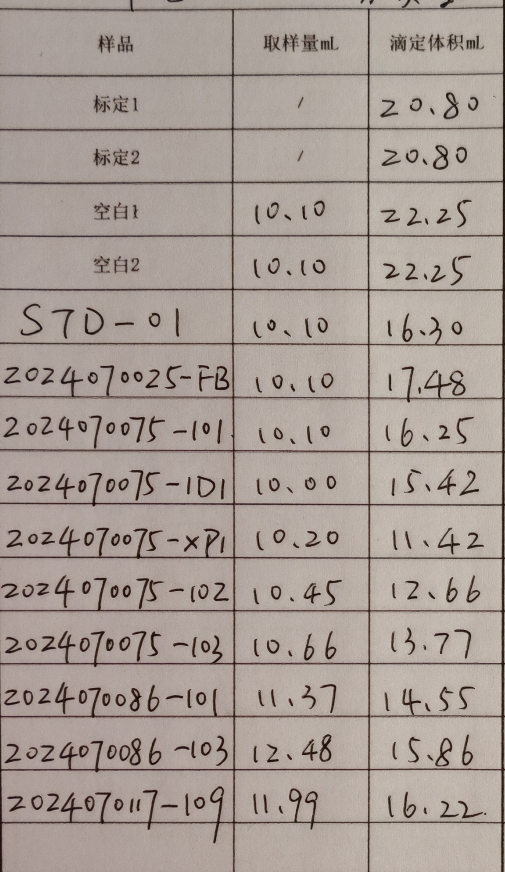 样品 取样量mL 滴定体积mL
标定1 / 20.80
标定2 / 20.80
空白1 10.10 22.25
空白2 10.10 22.25
STD-01 10.10 16.30
2024070025-FB 10.10 17.48
2024070075-101 10.10 16.25
2024070075-1D1 10.00 15.42
2024070075-XP1 10.20 11.42
2024070075-102 10.45 12.66
2024070075-103 10.66 13.77
2024070086-101 11.37 14.55
2024070086-103 12.48 15.86
2024070117-109 11.99 16.22